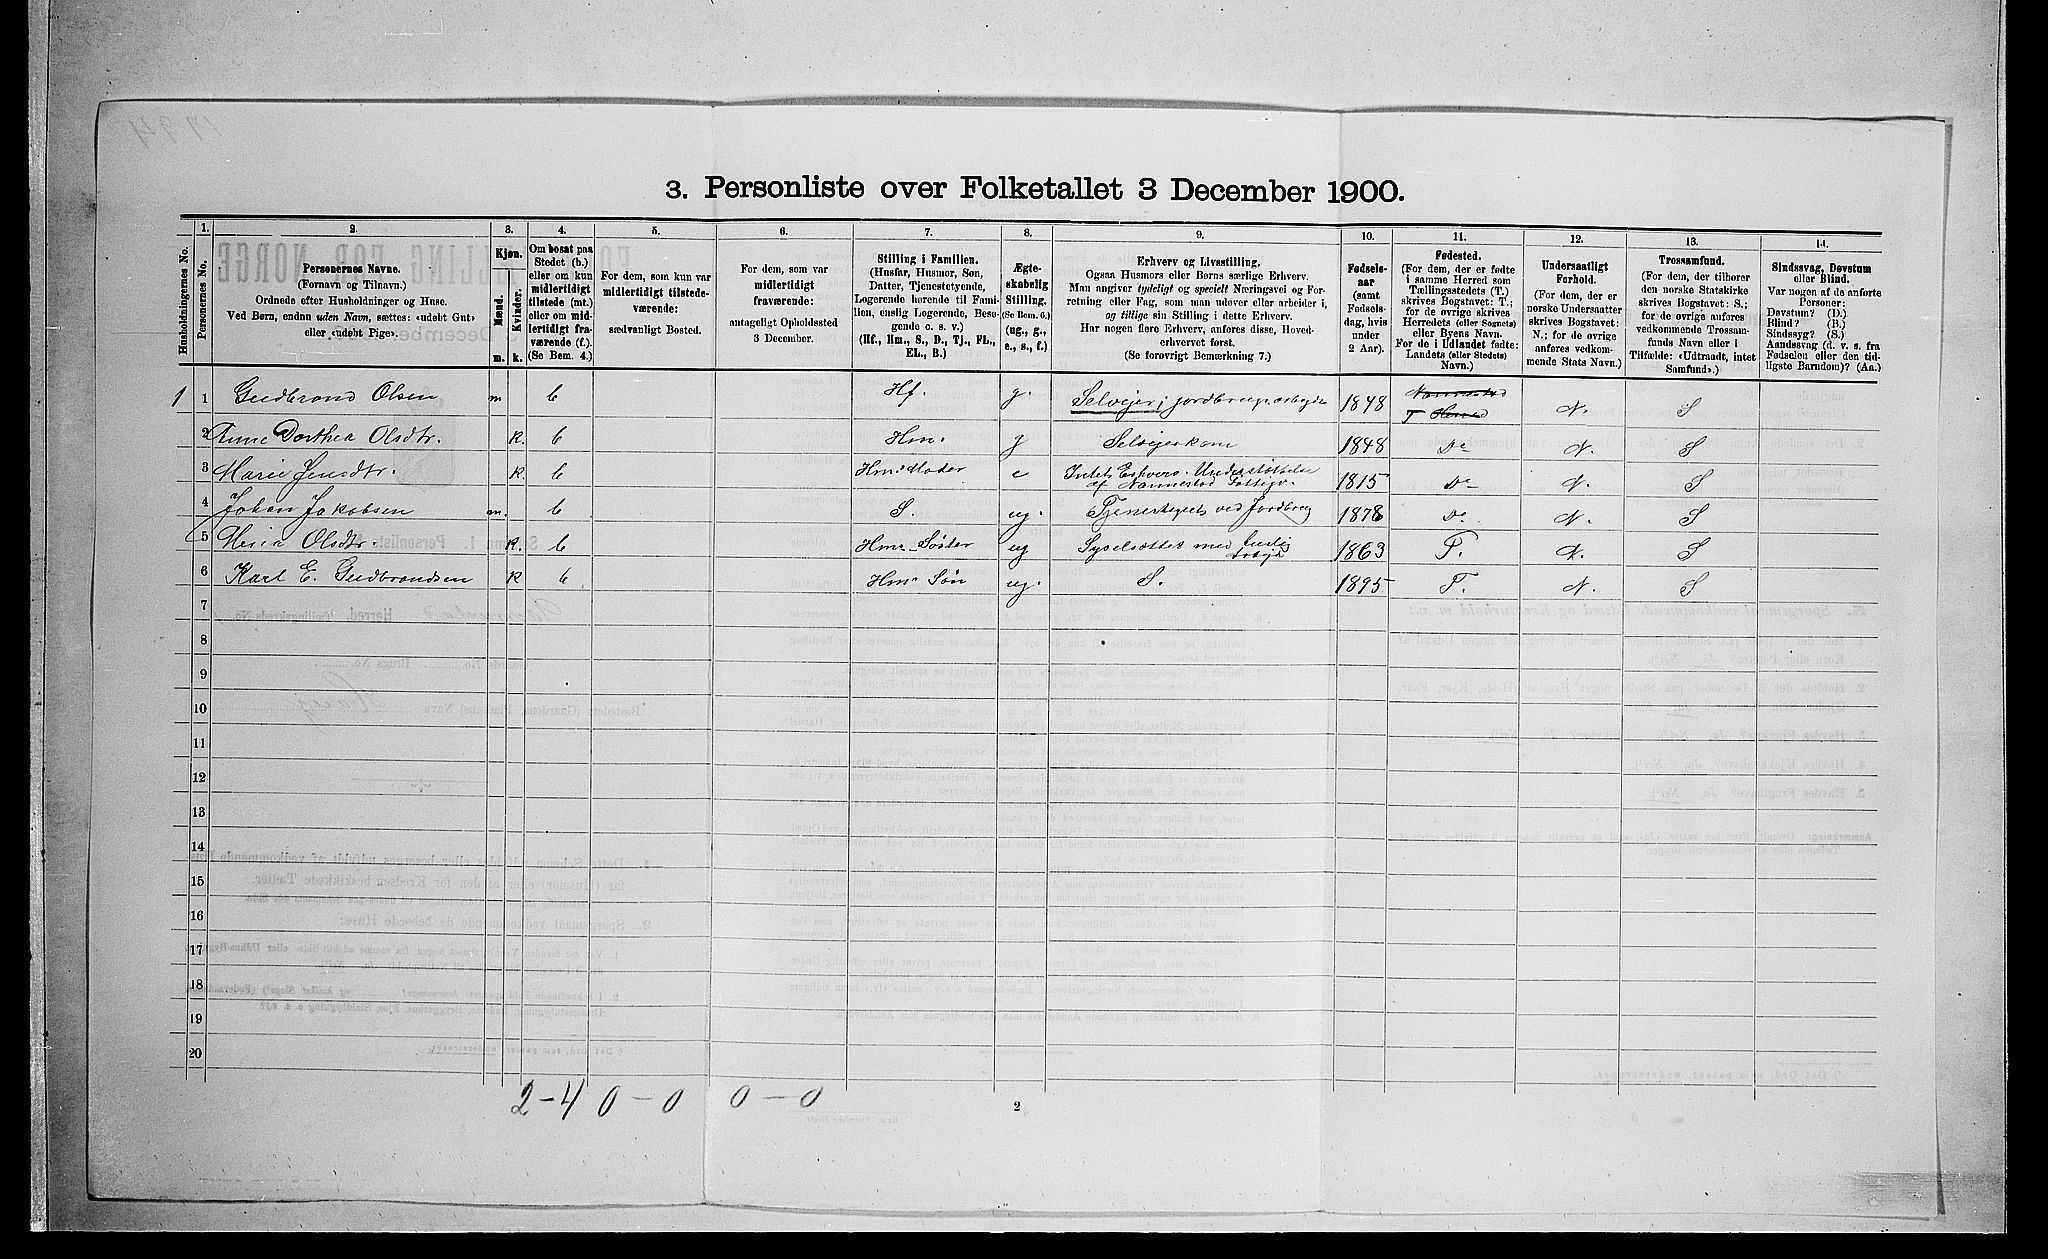 3. Personliste over Folketallet 3 December 1900.
Husholdningernes No.
1. Personernes No.
2. Personernes Navne.
(Fornavn og Tilnavn.)
Ordnede efter Husholdninger og Huse.
Ved Børn, endnu uden Navn, sættes: «udøbt Gut»
eller «udøbt Pige».
3. Kjøn.
Mænd. m.
Kvinder. k.
4. Om bosat paa
Stedet (b.)
eller om kun
midlertidigt
tilstede (mt.)
eller om mid-
lertidigt fra-
værende (f.).
(Se Bem. 4.)
5. For dem, som kun var
midlertidigt tilstede-
værende:
sædvanligt Bosted.
6. For dem, som var
midlertidigt
fraværende:
antageligt Opholdssted
3 December.
7. Stilling i Familien.
(Husfar, Husmor, Søn,
Datter, Tjenestetyende,
Logerende hørende til Fami-
lien, enslig Logerende, Besø-
gende o. s. v.)
(Hf., Hm., S., D., Tj., FL.,
EL., B.)
8. Ægte-
skabelig
Stilling.
(Se Bem. 6.)
(ug., g.,
e., s., f.)
9. Erhverv og Livsstilling.
Ogsaa Husmors eller Børns særlige Erhverv.
Man angiver tydeligt og specielt Næringsvei og For-
retning eller Fag, som man udøver eller arbeider i,
og tillige sin Stilling i dette Erhverv.
Har nogen flere Erhverv, anføres disse, Hoved-
erhvervet først.
(Se forøvrigt Bemerkning 7.)
10. Fødsels-
aar
(samt
Fødsels-
dag, hvis
under
2 Aar).
11. Fødested.
(For dem, der er fødte
i samme Herred som
Tællingsstedets (T.)
skrives Bogstavet: T.;
for de øvrige skrives
Herredets (eller Sognets)
eller Byens Navn.
For de i Udlandet fødte:
Landets (eller Stedets)
Navn.)
12. Undersaatligt
Forhold.
(For dem, der er
norske Undersaatter
skrives Bogstavet:
N.; for de øvrige
anføres vedkom-
mende Stats Navn.)
13. Trossamfund.
(For dem, der tilhører
den norske Statskirke
skrives Bogstavet: S.;
for de øvrige anføres
vedkommende Trossam-
funds Navn eller i
Tilfælde: «Udtraadt, intet
Samfund».)
14. Sindssvag, Døvstum
eller Blind.
Var nogen af de anførte
Personer:
Døvstum? (D.)
Blind? (B.)
Sindssyg? (S.)
Aandssvag (d. v. s. fra
Fødselen eller den tid-
ligste Barndom)? (Aa.)
1 1 Gudbrand Olsen m b Hf. g. Selveier, jordbrug 1848 Nannestad T Herred N. S
2 Anne Dorthea Olsdtr. k. b Hm. g Selveierkone 1848 Do N. S
3 Marie Jensdtr. k. b Hm. Moder e Intet Erhverv. Understøttelse
af Nannestad Fattigv. 1815 Do N. S
4 Johan Jakobsen m. b S. ug. Tjenestegut ved Jordbrug 1878 Do N. S
5 Olsdtr. k. b Hm. Søster ug Sysselsættes med 1863 T. N. S
6 Karl E. Gudbrandsen k b Hm. Søn ug. S. 1895 T. N S
7
8
9
10
11
12
13
14
15
16
17
18
19
20
2-4 0-0 0-0
2